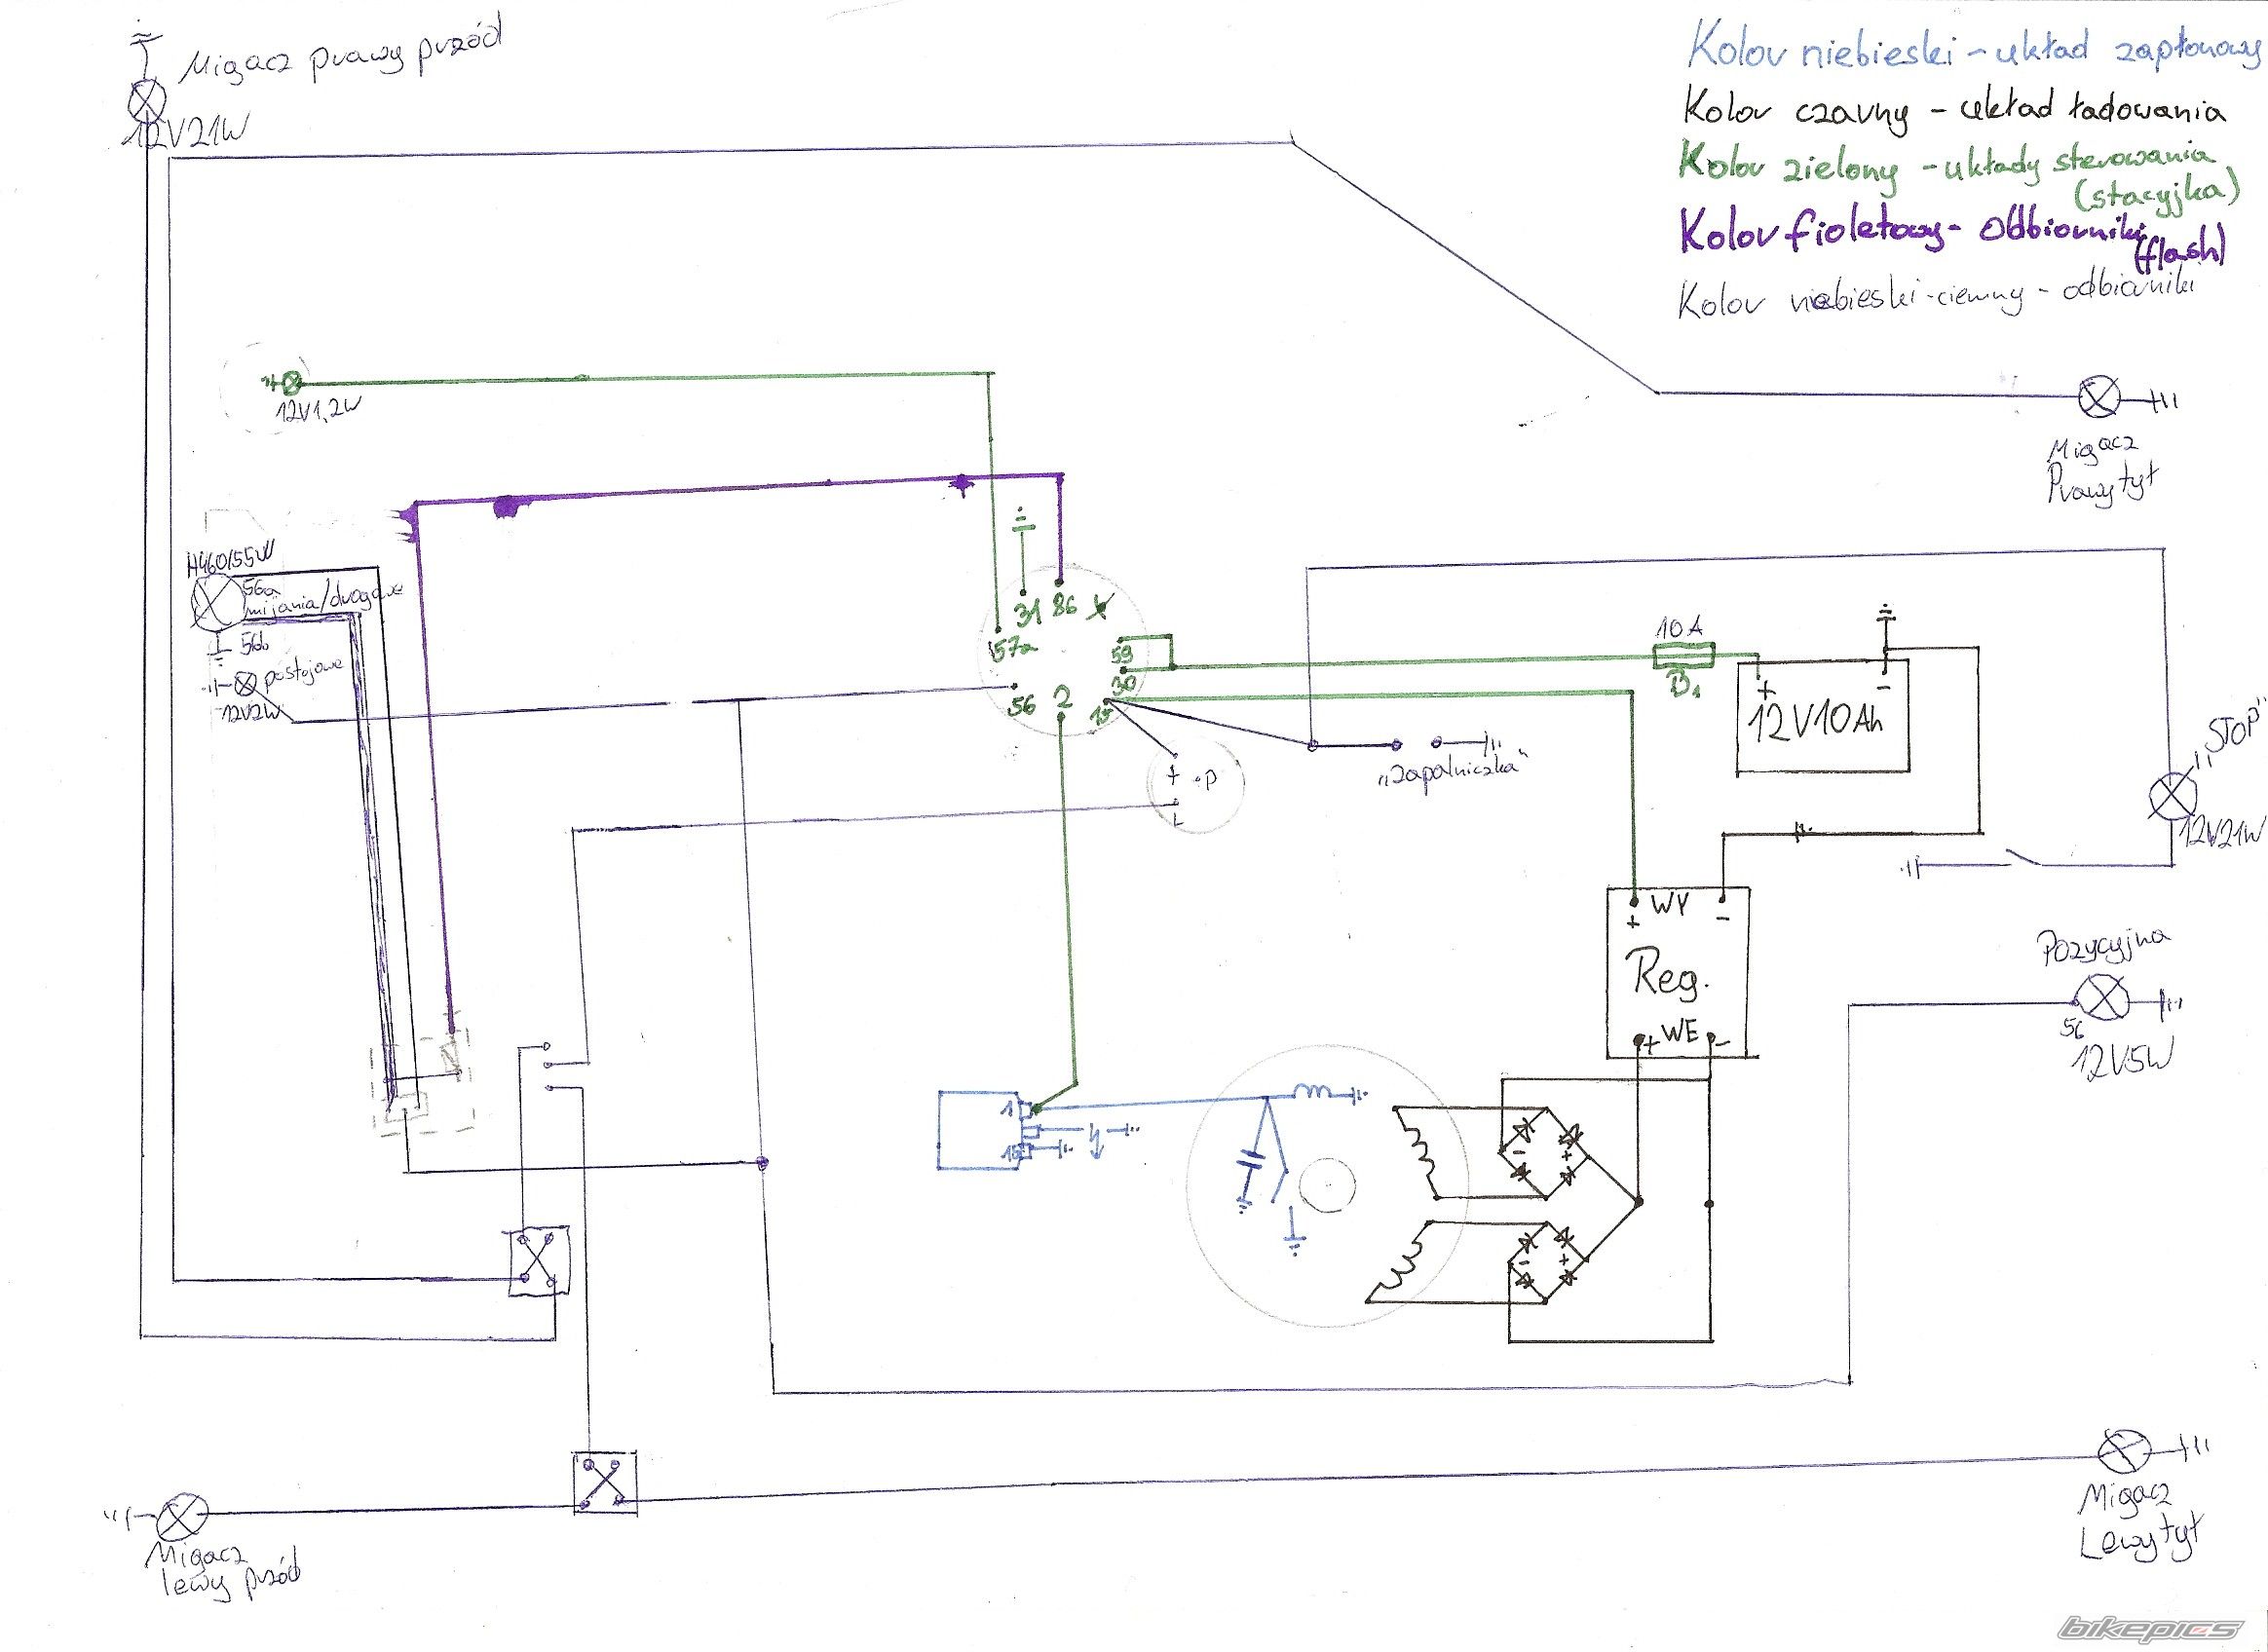 Migacz prawy przód
12V21W
Kolor niebieski - układ zapłonowy
Kolor czarny - układ ładowania
Kolor zielony - układy sterowania
(stacyjka)
Kolor fioletowy - odbiorniki
(flash)
Kolor niebieski-ciemny - odbiorniki
12V1,2W
Migacz
Prawy tył
H4 60/55W
56a
mijania/drogowe
56b
postojowe
12V2W
31 86
57a
59
30
56 2 15
10A
B1
+ -
12V10Ah
"STOP"
12V21W
+ P
L
"Zapalniczka"
WY
+ -
Reg.
+ WE -
Pozycyjna
56
12V5W
1
15
- +
- +
Migacz
lewy przód
Migacz
Lewy tył
bikepics